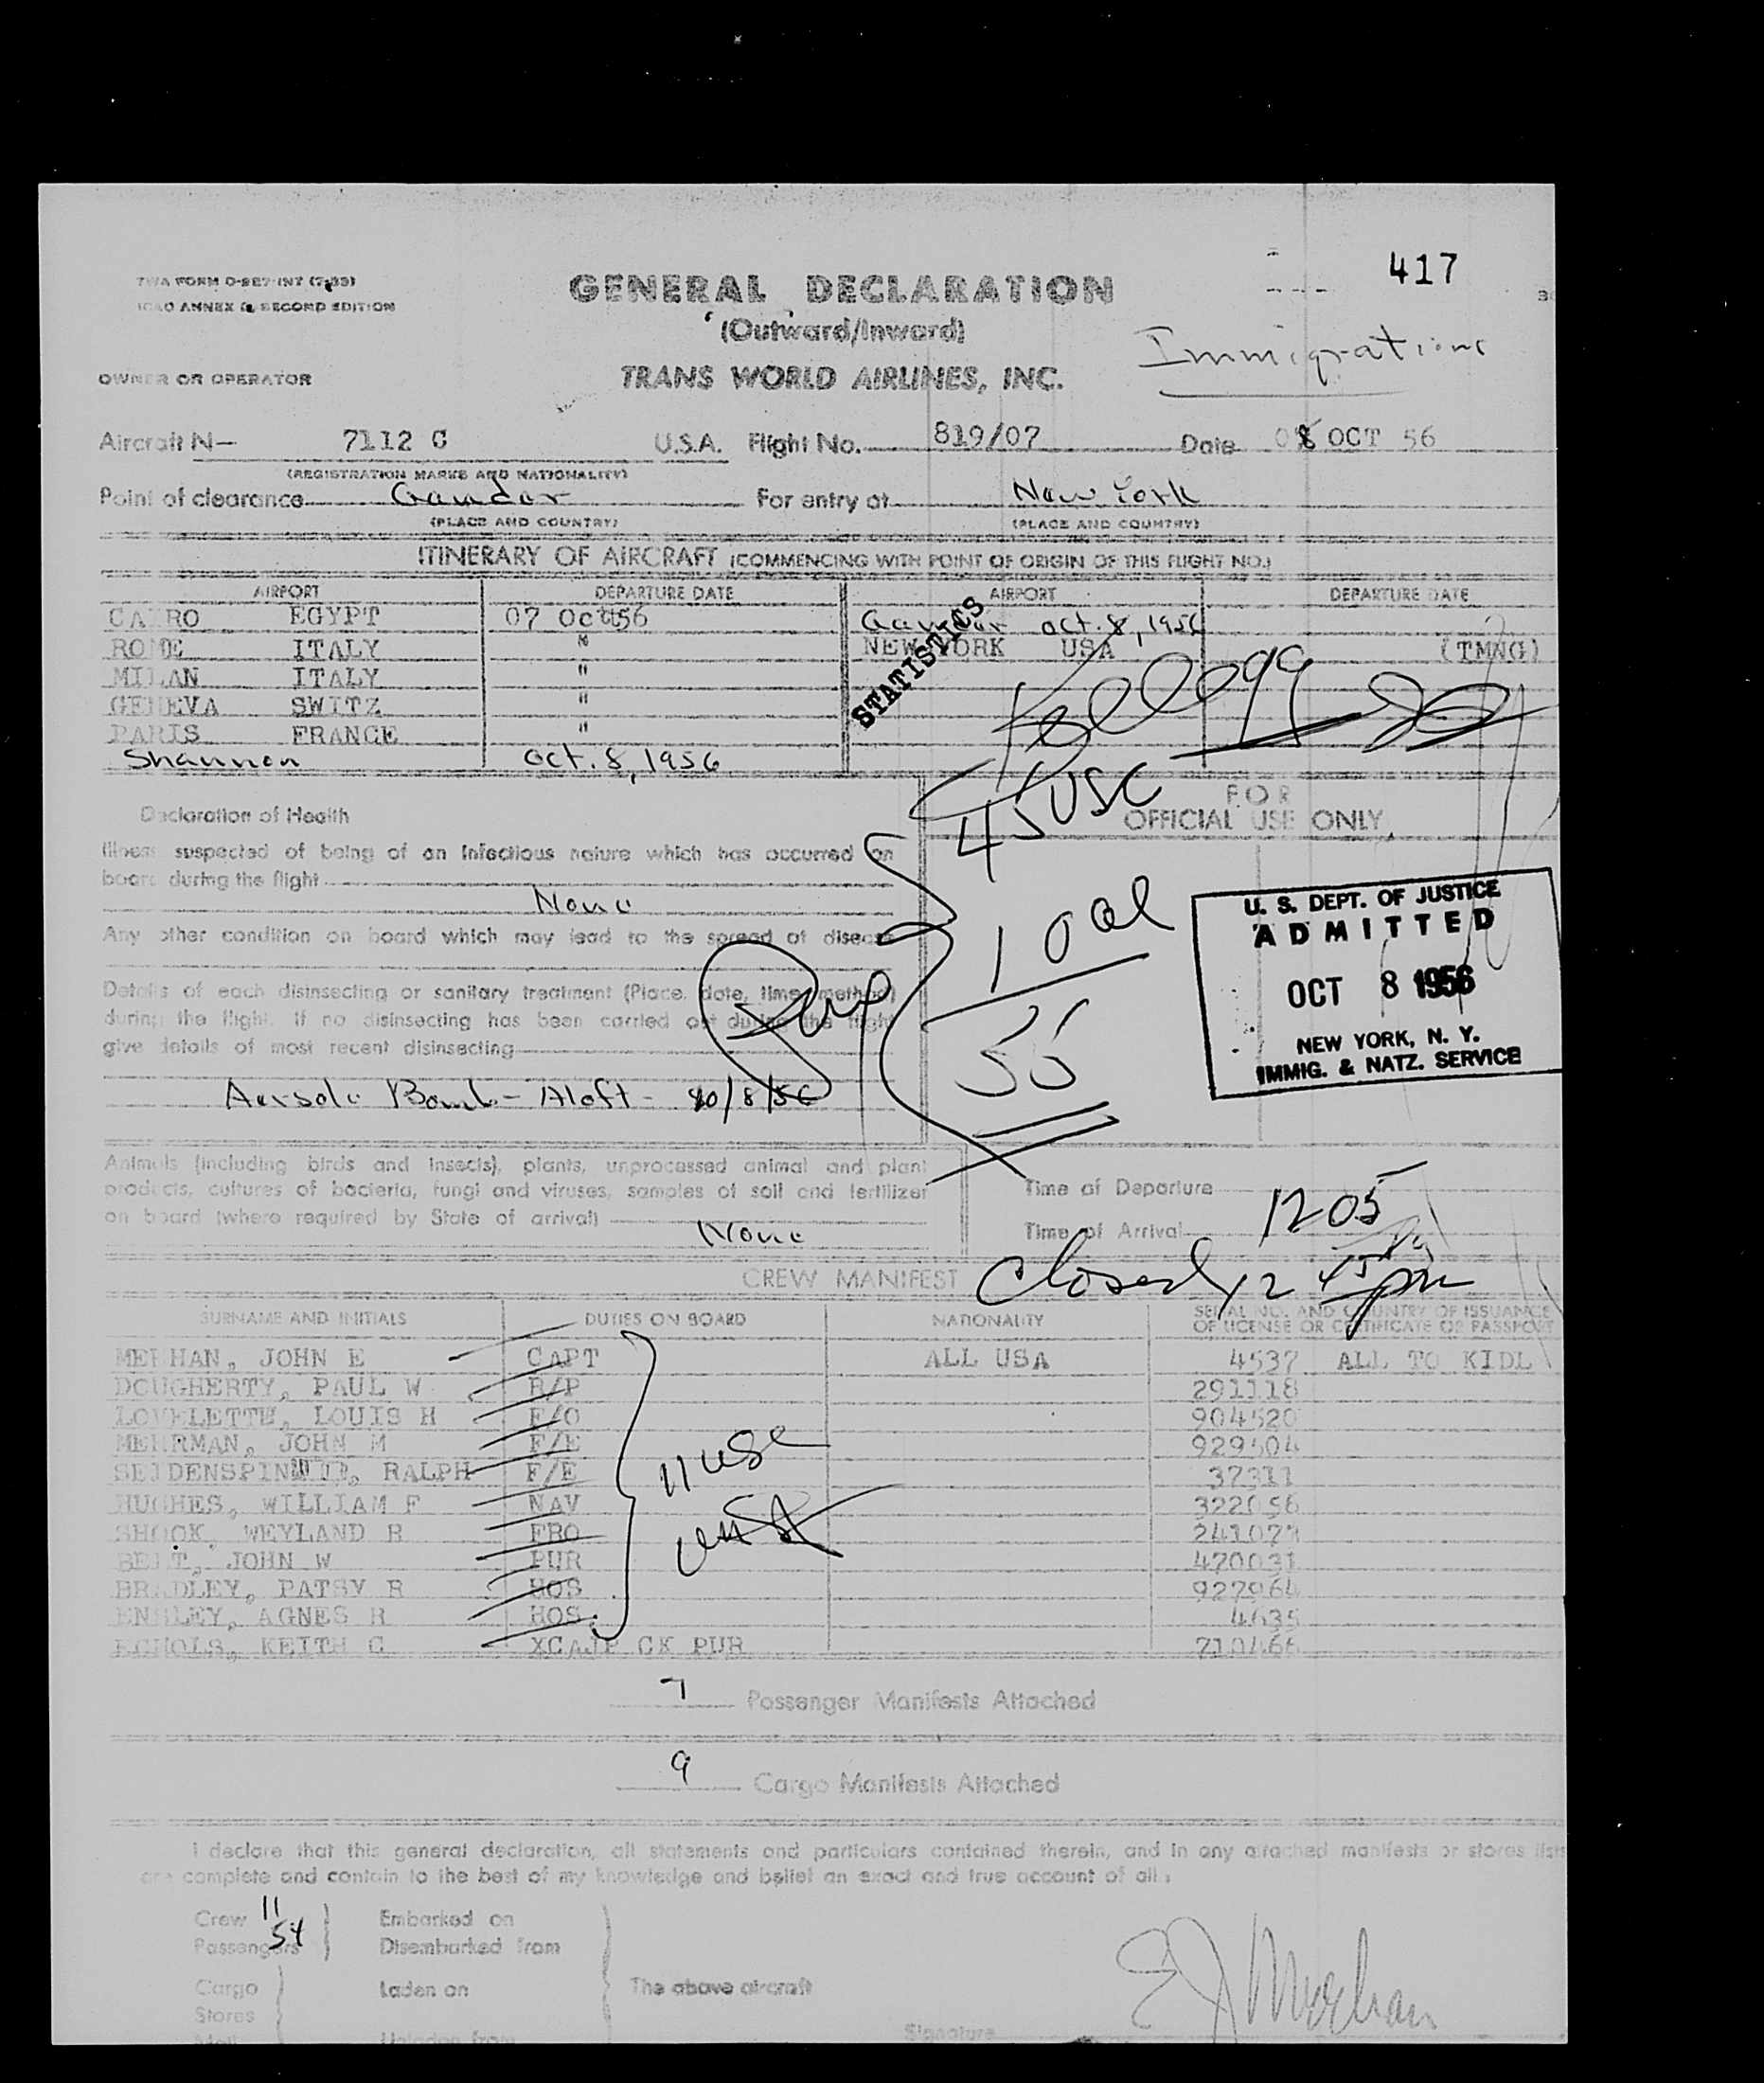 417
TWA FORM
ICAO ANNEX SECOND EDITION
GENERAL DECLARATION
(Outward/Inward)
Immigrations
OWNER OR OPERATOR
TRANS WORLD AIRLINES, INC.
Aircraft N— 7112 C U.S.A. Flight No. 819/07 Date 08 OCT 56
(REGISTRATION MARKS AND NATIONALITY)
Point of clearance Gander For entry at New York
(PLACE AND COUNTRY) (PLACE AND COUNTRY)
ITINERARY OF AIRCRAFT (COMMENCING WITH POINT OF ORIGIN OF THIS FLIGHT NO.)
AIRPORT DEPARTURE DATE AIRPORT DEPARTURE DATE
CAIRO EGYPT 07 Oct56 Gander Oct. 8, 1956
ROME ITALY " NEW YORK USA (TMNG)
MILAN ITALY "
GENEVA SWITZ "
PARIS FRANCE "
Shannon Oct. 8, 1956
STATISTICS
Kellogg
45 USC
FOR
OFFICIAL USE ONLY
Declaration of Health
Illness suspected of being of an infectious nature which has occurred on
board during the flight
None
Any other condition on board which may lead to the spread of disease
Details of each disinsecting or sanitary treatment (Place, date, time, method)
during the flight. If no disinsecting has been carried out during the flight
give details of most recent disinsecting
Aersolo Bomb - Aloft - 10/8/56
10 al
55
U. S. DEPT. OF JUSTICE
ADMITTED
OCT 8 1956
NEW YORK, N. Y.
IMMIG. & NATZ. SERVICE
Animals (including birds and insects), plants, unprocessed animal and plant
products, cultures of bacteria, fungi and viruses, samples of soil and fertilizer
on board (where required by State of arrival)
None
Time of Departure
Time of Arrival 1205
Closed 12 45 pm
CREW MANIFEST
SURNAME AND INITIALS DUTIES ON BOARD NATIONALITY SERIAL NO. AND COUNTRY OF ISSUANCE
OF LICENSE OR CERTIFICATE OR PASSPORT
MEEHAN, JOHN E CAPT ALL USA 4537 ALL TO KIDL
DOUGHERTY, PAUL W R/P 291118
LOVELETTE, LOUIS H F/O 904520
MEHRMAN, JOHN M F/E 929504
RALPH F/E 37311
HUGHES, WILLIAM F NAV 322056
SHOOK, WEYLAND R FRO
BELT, JOHN W PUR 470031
BRADLEY, PATSY R HOS 927964
ENSLEY, AGNES R HOS 4635
ECHOLS, KEITH C CK PUR 710466
11 usc
7 Passenger Manifests Attached
9 Cargo Manifests Attached
I declare that this general declaration, all statements and particulars contained therein, and in any attached manifests or stores lists
are complete and contain to the best of my knowledge and belief an exact and true account of all.
Crew 11 Embarked on
Passengers 54 Disembarked from
Cargo Laden on The above aircraft
Stores
Mail Unladen from
Signature